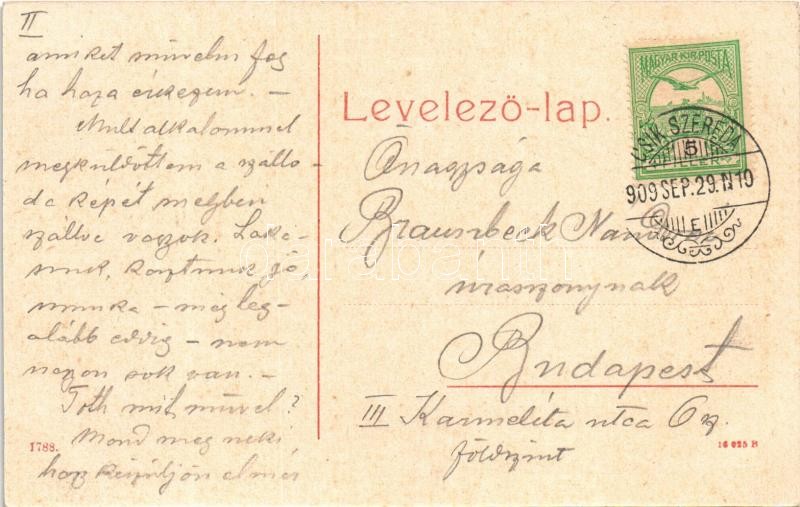 II
amiket művelni fog
ha haza érkezem. —
Mult alkalommal
megküldöttem a szállo-
da képét melyben
szállva vagyok. Laká-
sunk, kosztunk jó,
munka – még leg-
alább eddig – nem
nagyon sok van. —
Toth mit művel?
Mond meg neki
hogy készüljön
1788.
Levelező-lap.
MAGYAR KIR. POSTA
CSIK SZEREDA
5
909 SEP. 29. N 10
E
Őnagysága
Braunbeck
úraszonynak
Budapest
III Karmelita utca 6 sz.
földszint
16 025 B